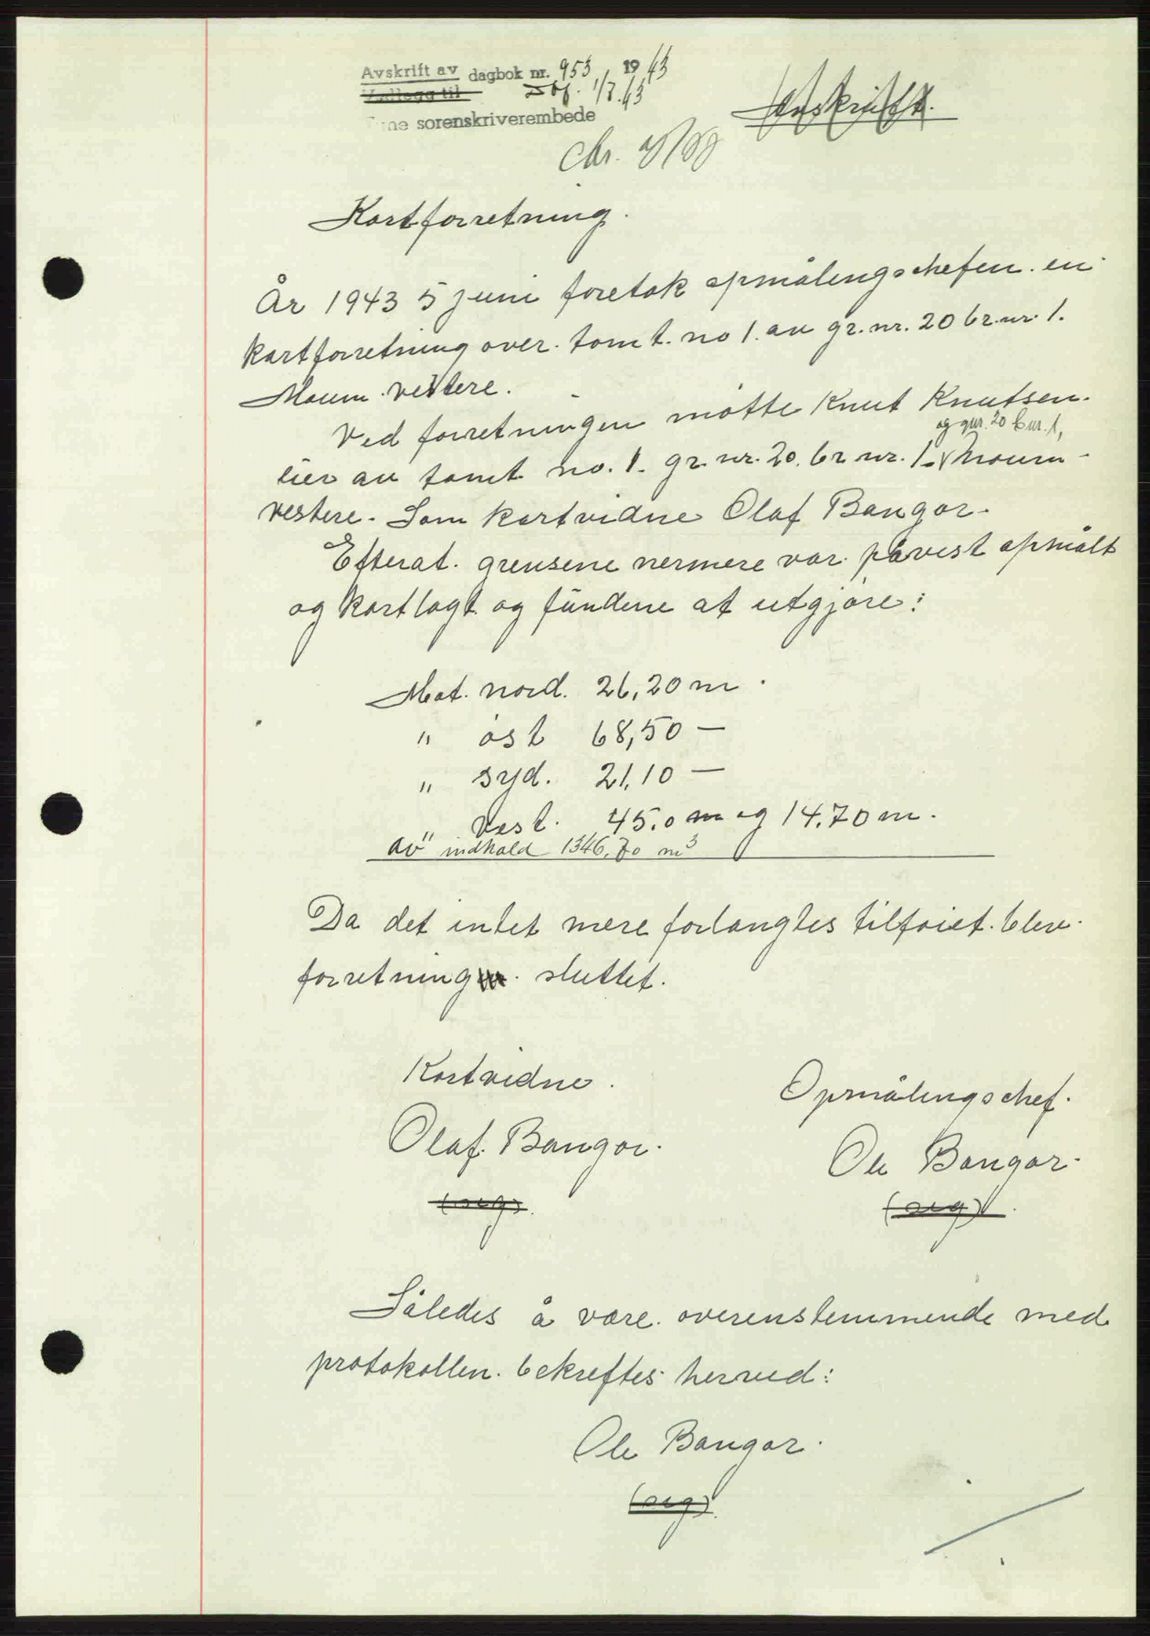 Avskrift av dagbok nr. 953 1943
Vedlegg til Dbf. 1/7.43
sorenskriverembede
Avskrift.
Kartforretning.
År 1943 5 juni foretok opmålingschefen en
kartforretning over tomt no 1. av gr. nr. 20 br. nr. 1.
Moum vestere.
Ved forretningen møtte Knut Knutsen.
og gnr. 20 bnr. 1,
eier av tomt no. 1. gr. nr. 20. br nr. 1. Moum
vestere. Som kartvidne Olaf Bangor.
Efterat grensene nermere var påvist opmålt
og kartlagt og fundene at utgjøre:
Mot nord. 26,20 m.
" øst 68,50 —
" syd. 21,10 —
" Vest. 45,0 m og 14,70 m.
av indhold 1346,70 m³
Da det intet mere forlangtes tilføiet blev
forretning sluttet.
Kartvidne.
Opmålingschef.
Olaf Bangor.
Ole Bangor.
(sig)
(sig)
Således å være overenstemmende med
protokollen bekreftes herved:
Ole Bangor.
(sig)